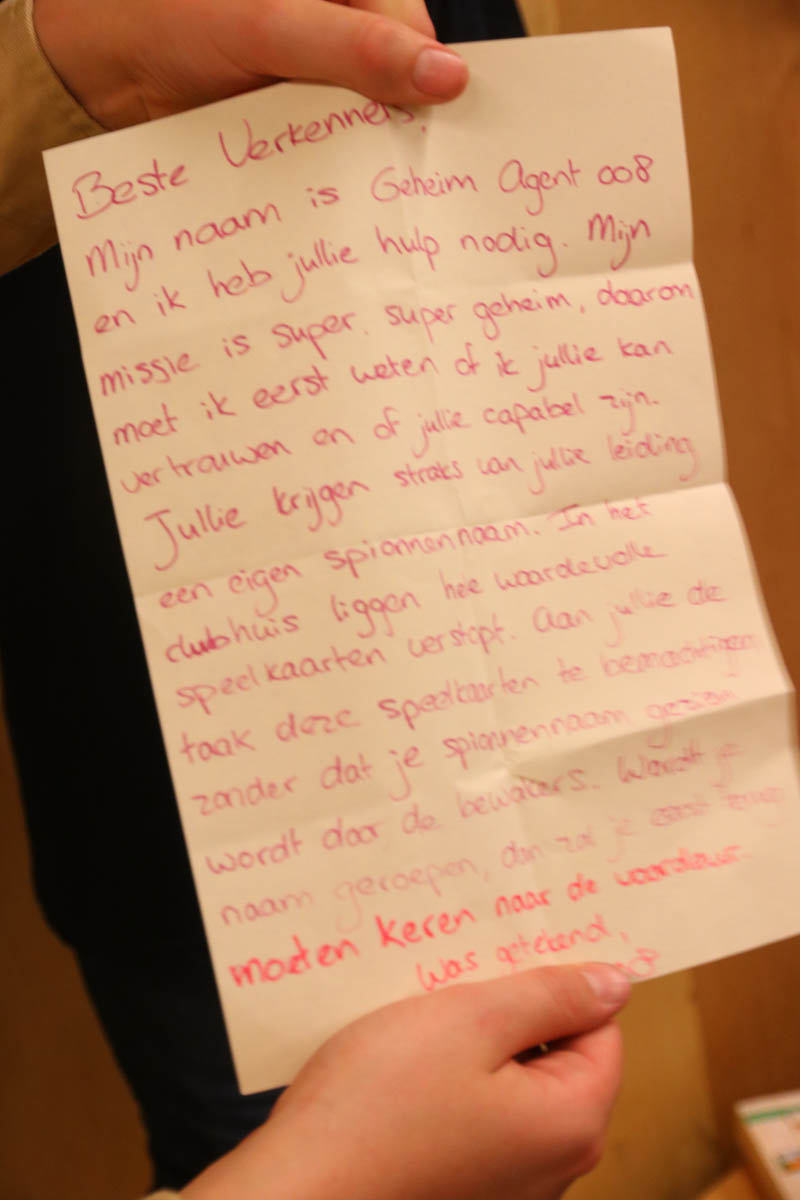 Beste Verkenners,
Mijn naam is Geheim Agent 008
en ik heb jullie hulp nodig. Mijn
missie is super. super geheim, daarom
moet ik eerst weten of ik jullie kan
vertrouwen en of jullie capabel zijn.
Jullie krijgen straks van jullie leiding
een eigen spionnennaam. In het
clubhuis liggen hele waardevolle
speelkaarten verstopt. Aan jullie de
taak deze speelkaarten te bemachtigen
zonder dat je spionnennaam gezien
wordt door de bewakers. Wordt je
naam geroepen, dan zal je eerst terug
moeten keren naar de voordeur.
Was getekend,
008